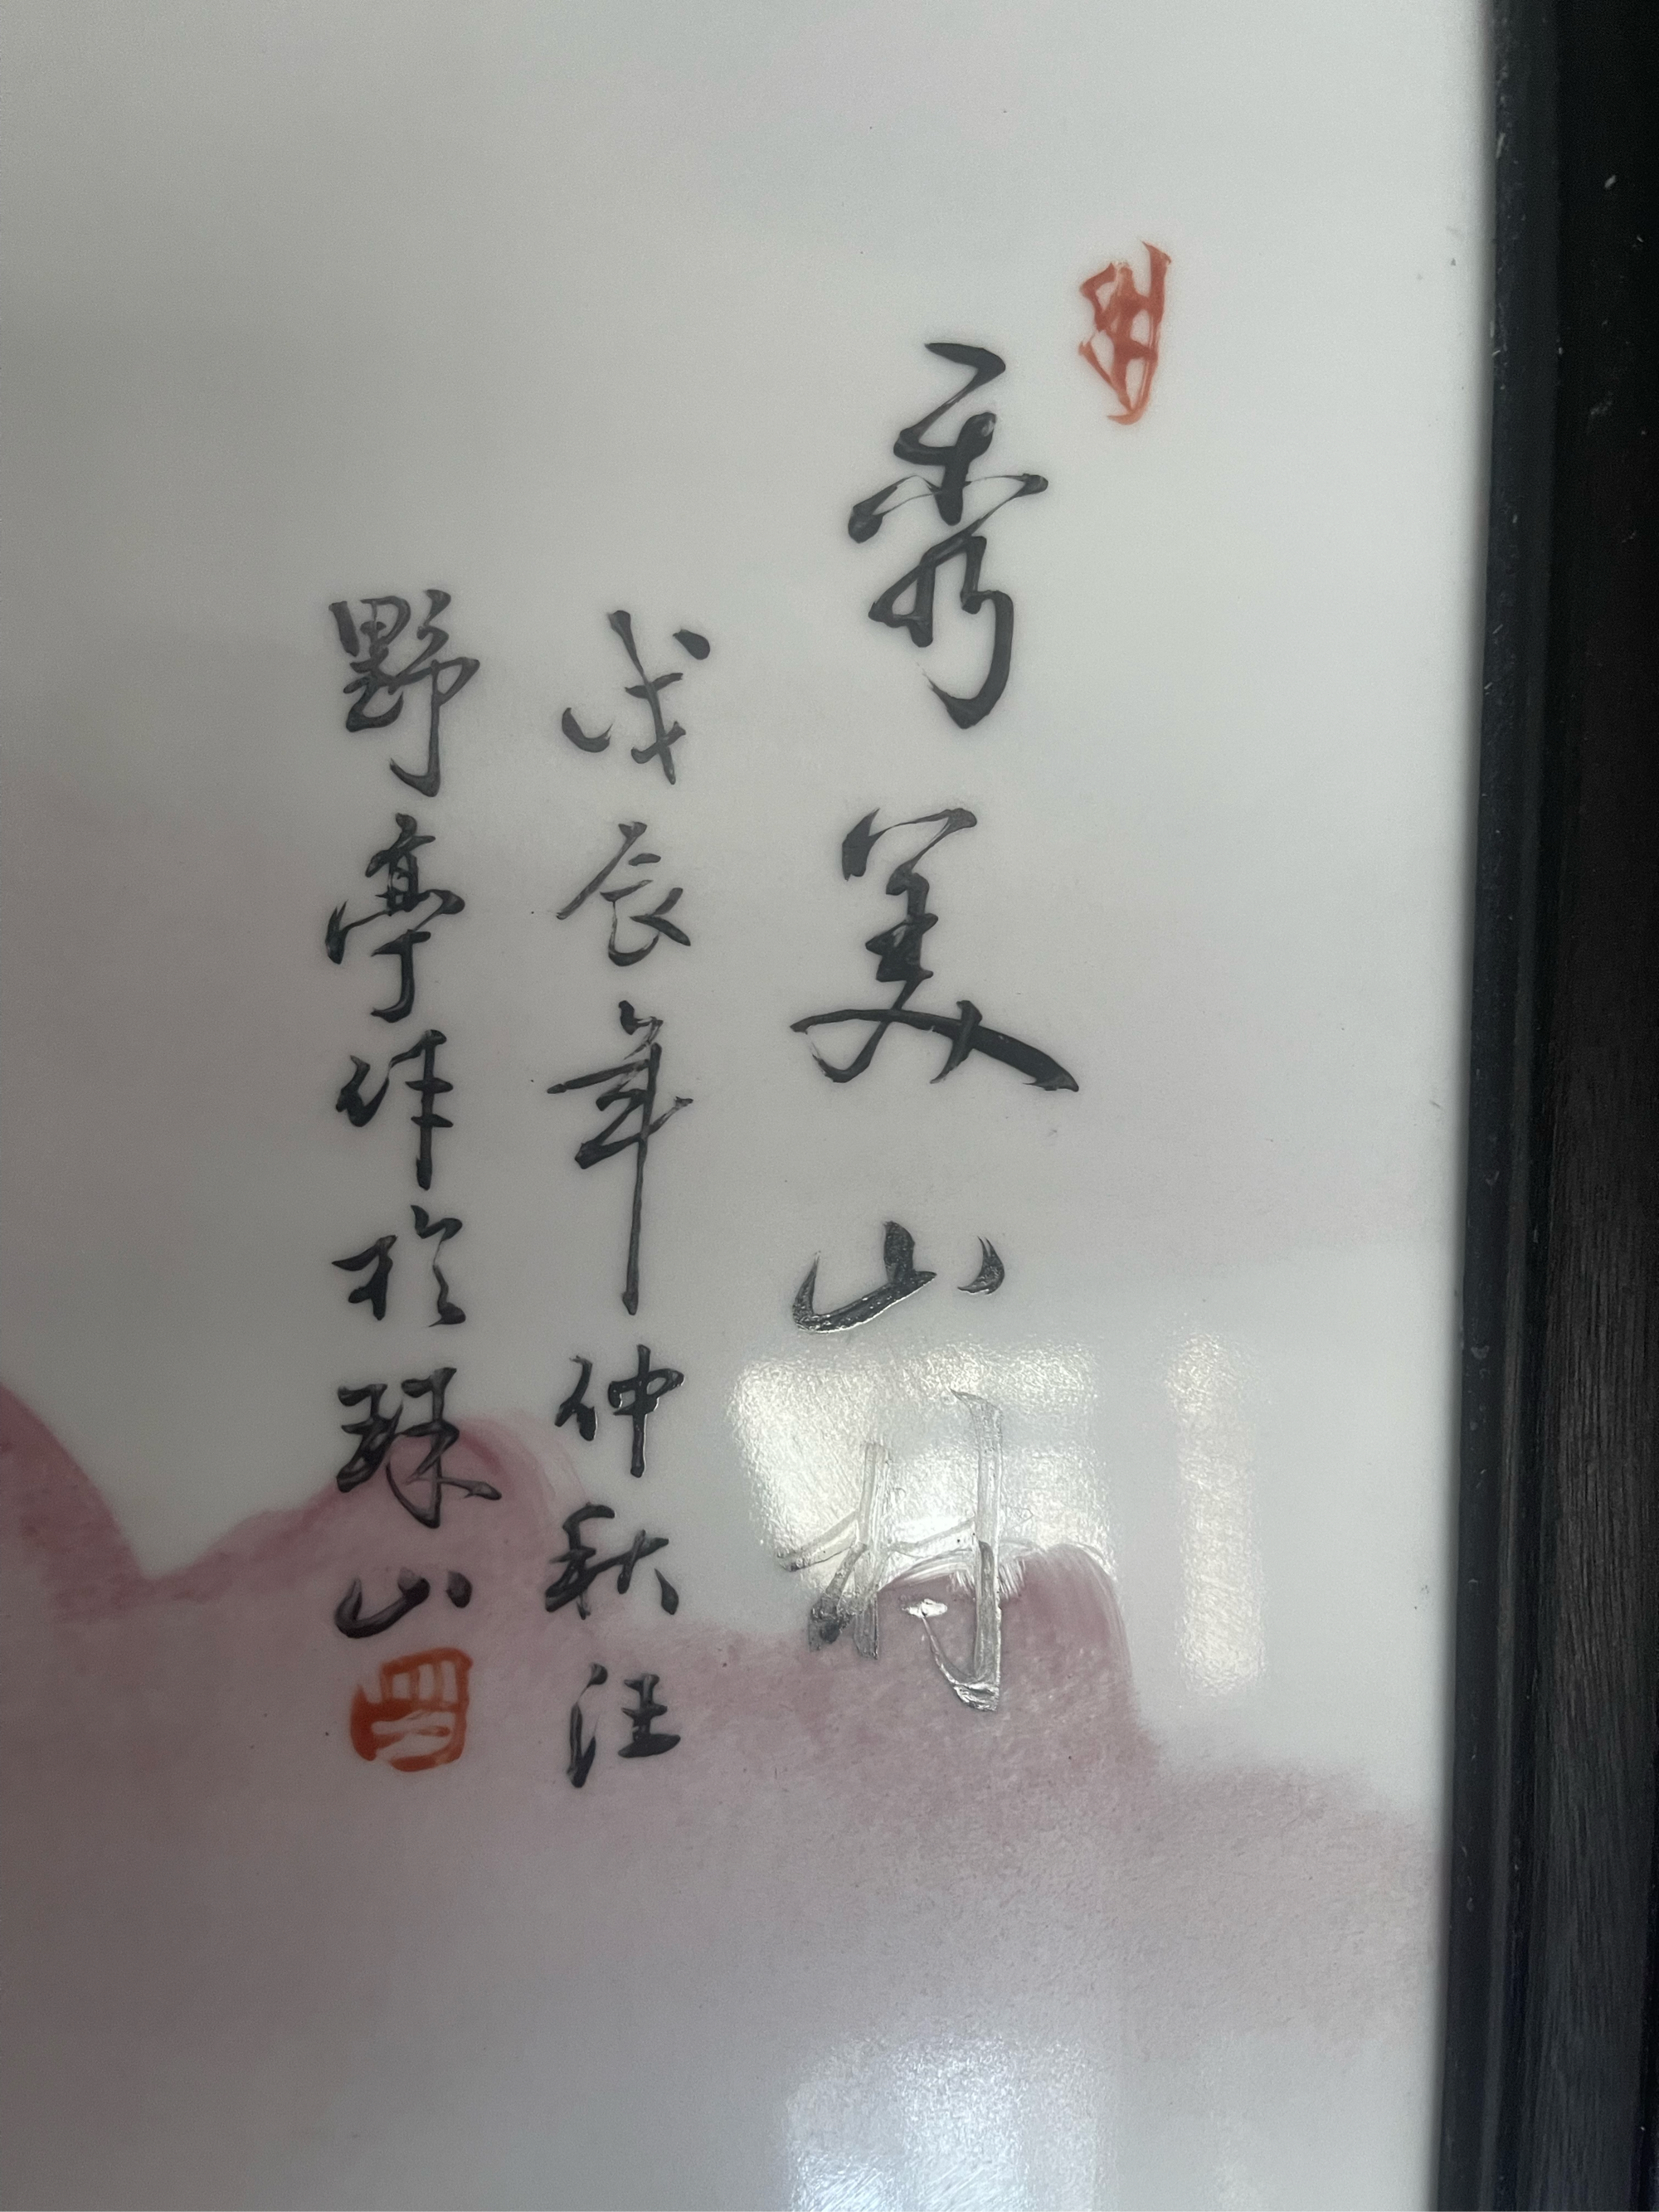 秀美山村
戊辰年仲秋汪
野亭作於珠山